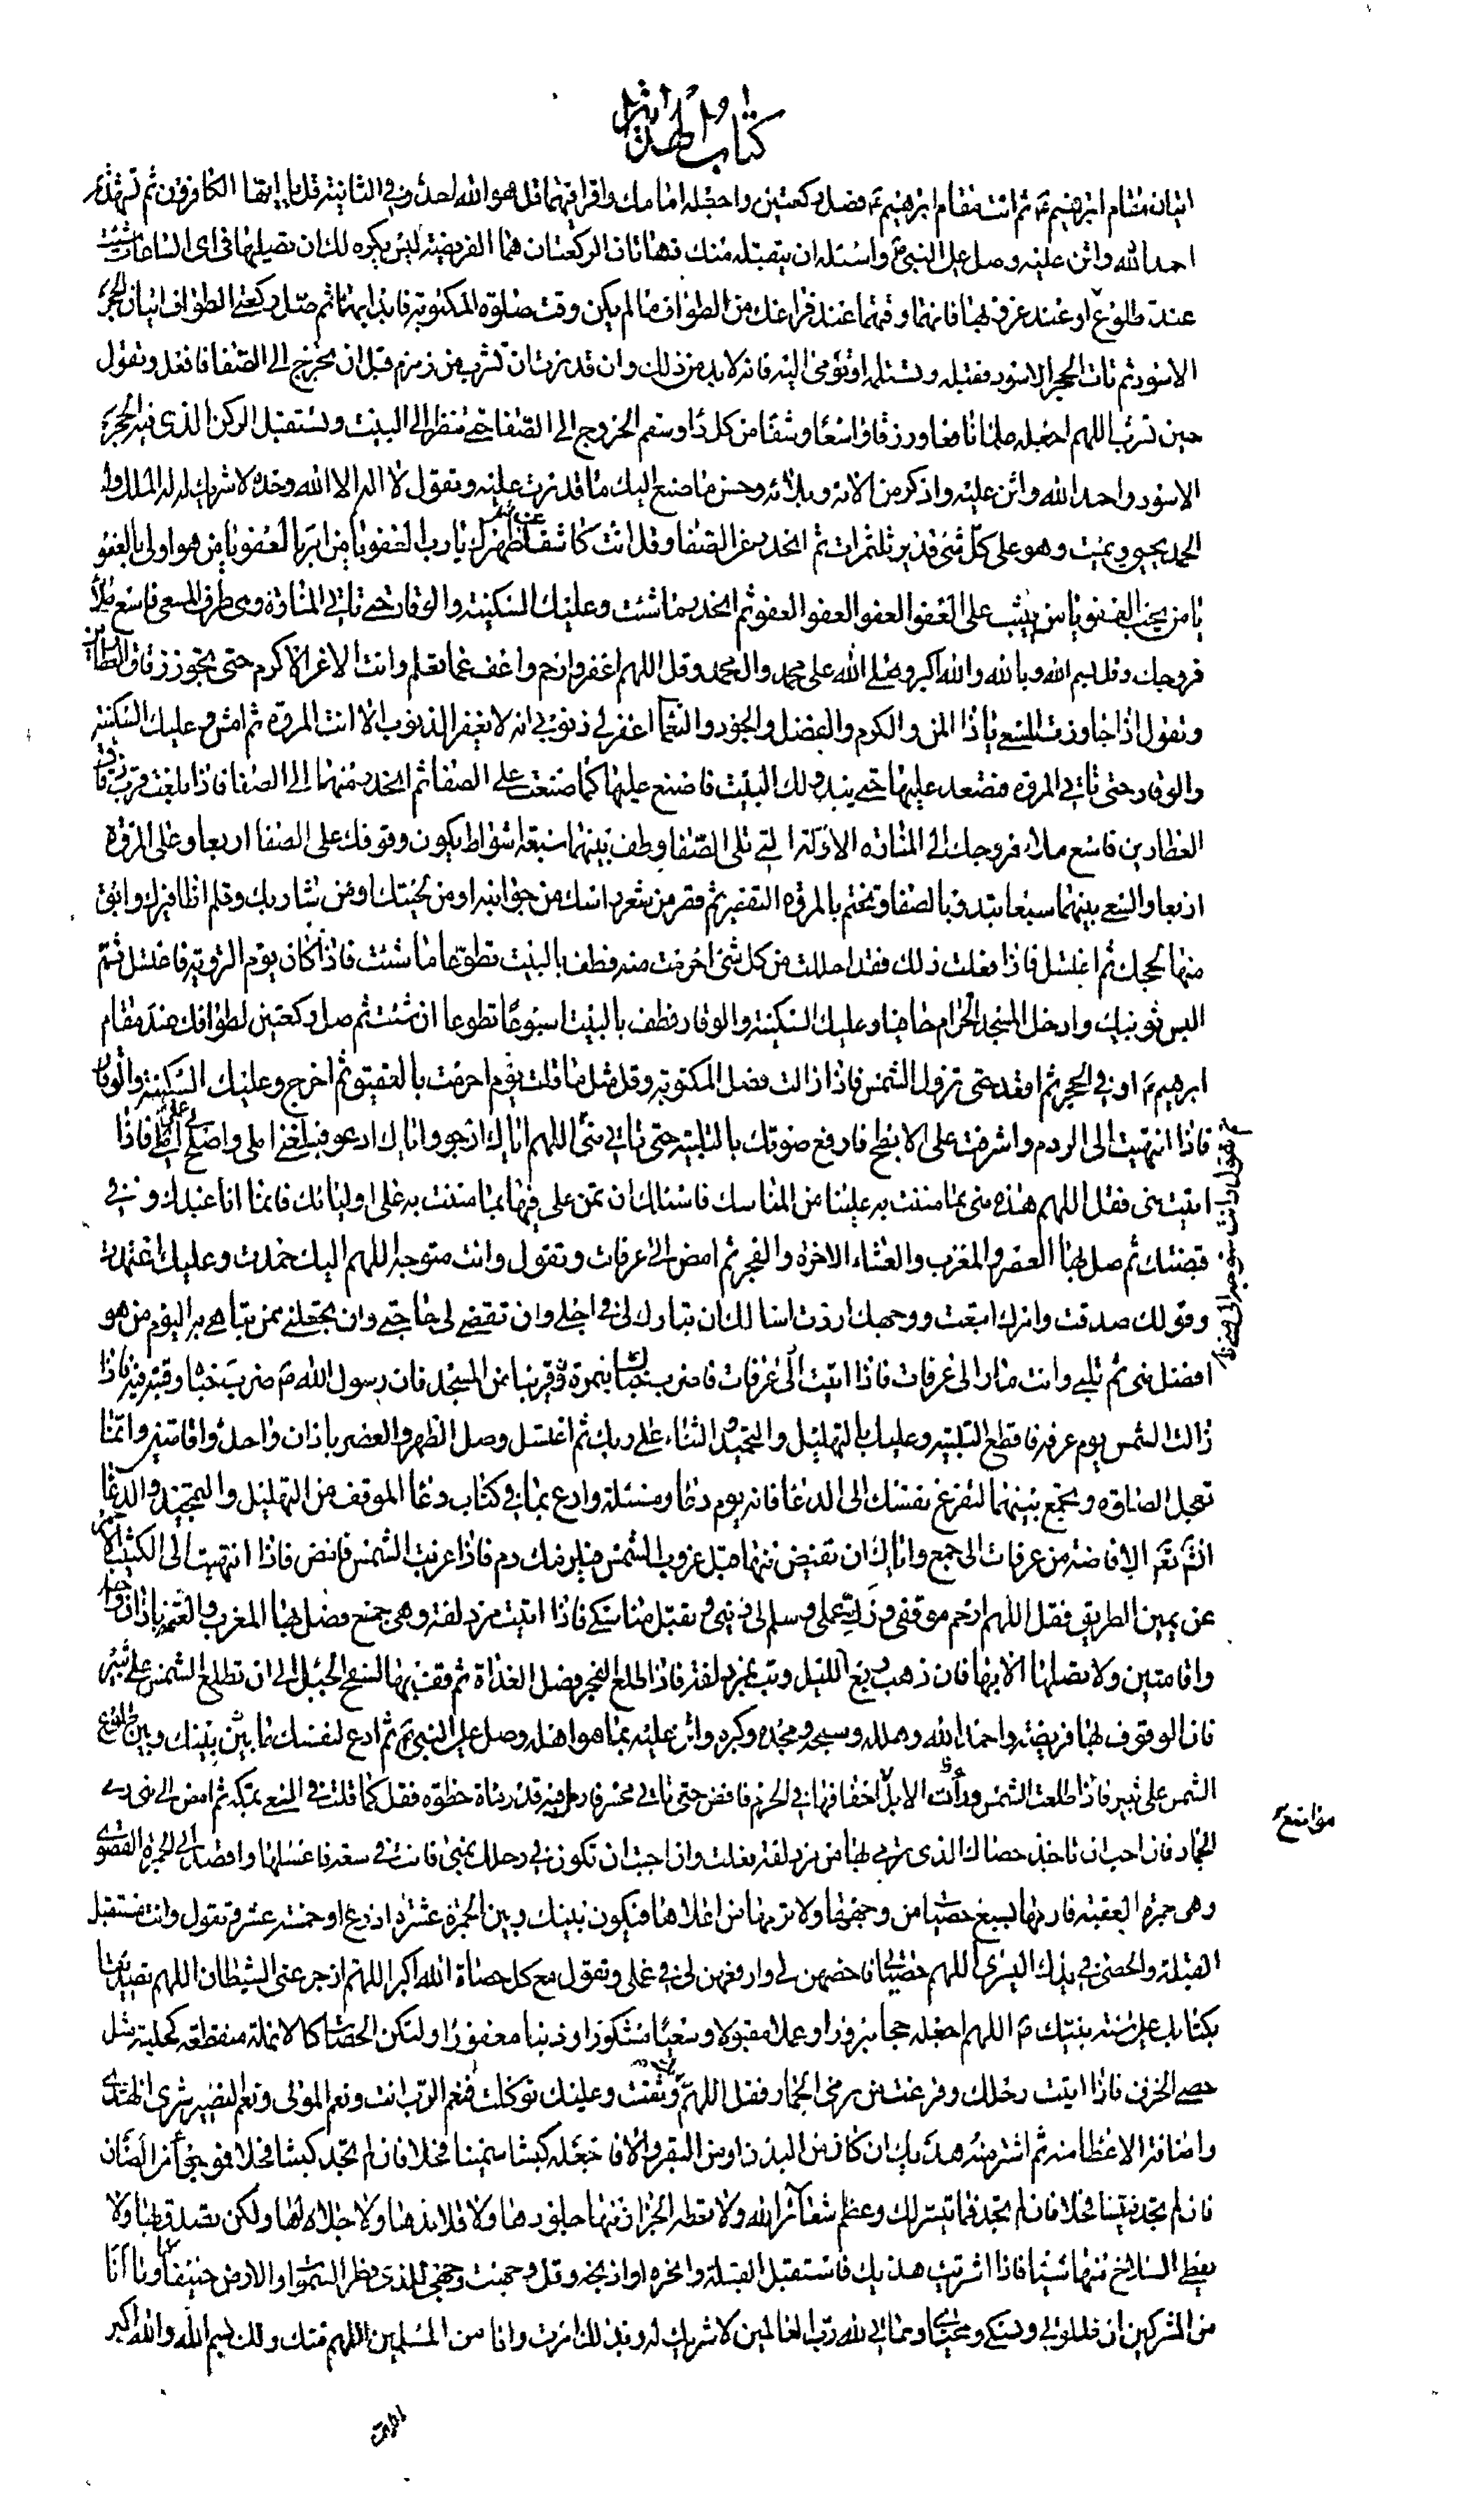 كتاب الهداية
اتيان مقام ابرهيم ثم ائت مقام ابرهيم فصل ركعتين واجعله امامك واقرأ فيهما قل هو الله احد وفي الثانية قل يا ايها الكافرون ثم تشهد ثم
احمد الله واثن عليه وصل على النبي واسئله ان يتقبله منك فهاتان الركعتان هما الفريضة ليس يكره لك ان تصليهما في اي الساعات شئت
عند طلوع او عند غروبها فانما وقتهما عند فراغك من الطواف ما لم يكن وقت صلوة المكتوبة فابدأ بها ثم صل ركعتي الطواف اتيان الحجر
الاسود ثم تأت الحجر الاسود فقبله وتستلمه او تؤمي اليه فانه لا بد من ذلك وان قدرت ان تشرب من زمزم قبل ان تخرج الى الصفا فافعل وتقول
حين تشرب اللهم اجعله علما نافعا ورزقا واسعا وشفا من كل داء وسقم الخروج الى الصفا حتى تنظر الى البيت وتستقبل الركن الذي فيه الحجر
الاسود واحمد الله واثن عليه واذكر من الائه وبلائه وحسن ما صنع اليك ما قدرت عليه وتقول لا اله الا الله وحده لا شريك له له الملك وله
الحمد يحيي ويميت وهو على كل شئ قدير ثلث مرات ثم انحدر عن الصفا وقل وانت كاشف عن ظهرك يا رب العفو يا من امر بالعفو يا من هو اولى بالعفو
يا من يحب العفو يا من يثيب على العفو العفو العفو العفو ثم انحدر ماشيا وعليك السكينة والوقار حتى تأتي المنارة وهي طرف المسعى فاسع ملأ
فروجك وقل بسم الله وبالله والله اكبر وصلى الله على محمد وال محمد وقل اللهم اغفر وارحم واعف عما تعلم وانت الاعز الاكرم حتى تجوز زقاق العطارين
وتقول اذا جاوزت المسعى يا ذا المن والكرم والفضل والجود والنعما اغفر لي ذنوبي انه لا يغفر الذنوب الا انت المروة ثم امش وعليك السكينة
والوقار حتى تأتي المروة فتصعد عليها حتى يبدو لك البيت فاصنع عليها كما صنعت على الصفا ثم انحدر منها الى الصفا فاذا بلغت قرب زقاق
العطارين فاسع ملأ فروجك الى المنارة الاولة التي تلي الصفا وطف بينهما سبعة اشواط يكون وقوفك على الصفا اربعا وعلى المروة
اربعا والسعي بينهما سبعا تبدء بالصفا وتختم بالمروة التقصير ثم قصر من شعر راسك من جوانبه ومن لحيتك ومن شاربك وقلم اظافيرك وابق
منها لحجك ثم اغتسل فاذا فعلت ذلك فقد احللت من كل شئ احرمت منه فطف بالبيت تطوعا ما شئت فاذا كان يوم التروية فاغتسل ثم
البس ثوبيك وادخل المسجد الحرام حافيا وعليك السكينة والوقار فطف بالبيت اسبوعا تطوعا ان شئت ثم صل ركعتين لطوافك عند مقام
ابرهيم او في الحجر ثم اقعد حتى تزول الشمس فاذا زالت فصل المكتوبة وقل مثل ما قلت يوم احرمت بالعقيق ثم اخرج وعليك السكينة والوقار
فاذا انتهيت الى الردم واشرفت على الابطح فارفع صوتك بالتلبية حتى تأتي منى اللهم اياك ارجو واياك ادعو فبلغني املي واصلح لي عملي فاذا
اتيت منى فقل اللهم هذه منى مما مننت به علينا من المناسك فاسئلك ان تمن علي فيها بما مننت به على اوليائك فانما انا عبدك وفي
قبضتك ثم صل بها العصر والمغرب والعشاء الاخرة والفجر ثم امض الى عرفات وتقول وانت متوجه اللهم اليك صمدت وعليك اعتمدت
وقولك صدقت وامرك اتبعت ووجهك اردت اسالك ان تبارك لي في اجلي وان تقضي لي حاجتي وان تجعلني ممن تباهي به اليوم من هو
افضل مني ثم تلبي وانت مار الى عرفات فاذا اتيت الى عرفات فاضرب خباك بنمرة قريبا من المسجد فان رسول الله ضرب خباه وقبته فيه فاذا
زالت الشمس يوم عرفة فاقطع التلبية وعليك بالتهليل والتحميد والثناء على ربك ثم اغتسل وصل الظهر والعصر باذان واحد واقامتين وانما
تعجل الصلوة وتجمع بينهما لتفرغ نفسك الى الدعا فانه يوم دعا ومسئلة وادع بما في كتاب دعا الموقف من التهليل والتحميد والدعا
الافاضة من عرفات الى جمع واياك ان تفيض منها قبل غروب الشمس فيلزمك دم فاذا غربت الشمس فافض فاذا انتهيت الى الكثيب الاحمر
عن يمين الطريق فقل اللهم ارحم موقفي وزك عملي وسلم لي ديني وتقبل مناسكي فاذا اتيت مزدلفة وهي جمع فصل بها المغرب والعتمة باذان واحد
واقامتين ولا تصلهما الا بها فان ذهب ربع الليل وبت بمزدلفة فاذا طلع الفجر فصل الغداة ثم قف بها بسفح الجبل الى ان تطلع الشمس على ثبير
فان الوقوف بها فريضة واحمد الله وهلله وسبحه ومجده وكبره واثن عليه بما هو اهله وصل على النبي ثم ادع لنفسك ما بين بينك وبين طلوع
الشمس على ثبير فاذا طلعت الشمس ورأت الابل اخفافها في الحرم فافض حتى تأتي محسر فارمل فيه قدر مائة خطوة فقل كما قلت في السعي بمكة ثم امض الى منى رمي
مواضع
الجمار فان احب ان تاخذ حصاك الذي ترمي بها من مزدلفة فعلت وان احببت ان تكون في رحلك بمنى فانت في سعة فاغسلها واقصد الى الجمرة القصوى
وهي جمرة العقبة فارمها بسبع حصيات من وجهها ولا ترمها من اعلاها فيكون بينك وبين الجمرة عشرة اذرع او خمسة عشر وتقول وانت مستقبل
القبلة والحصى في يدك اليسرى اللهم حصياتي فاحصهن لي وارفعهن لي في عملي وتقول مع كل حصاة الله اكبر اللهم ازجر عني الشيطان اللهم تصديقا
بكتابك على سنة نبيك اللهم اجعله حجا مبرورا وعملا مقبولا وسعيا مشكورا وذنبا مغفورا ولتكن الحصات كالانملة منقطة كحلية مثل
حصى الخذف فاذا اتيت رحلك وفرغت من رمي الجمار فقل اللهم بك وثقت وعليك توكلت فنعم الرب انت ونعم المولى ونعم النصير شرى الهدي
واضافة الاعطا منه ثم اشتر منه هديك ان كان من البدن او من البقر والا فاجعله كبشا سمينا فحلا فان لم تجد كبشا فحلا فموجئ من الضان
فان لم تجد فتيسا فحلا فان لم تجد فما تيسر لك وعظم شعائر الله ولا تعط الجزار منها جلودها ولا قلائدها ولا جلالها ولكن تصدق بها ولا
تعطي السلاخ منها شيئا فاذا اشتريت هديك فاستقبل القبلة وانحره او اذبحه وقل وجهت وجهي للذي فطر السموات والارض حنيفا وما انا
من المشركين ان صلوتي ونسكي ومحياي ومماتي لله رب العالمين لا شريك له وبذلك امرت وانا من المسلمين اللهم منك ولك بسم الله والله اكبر